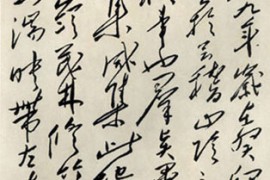 九年歲在癸
於會稽山陰
事也羣賢
咸集此地
嶺茂林修竹
湍映帶左